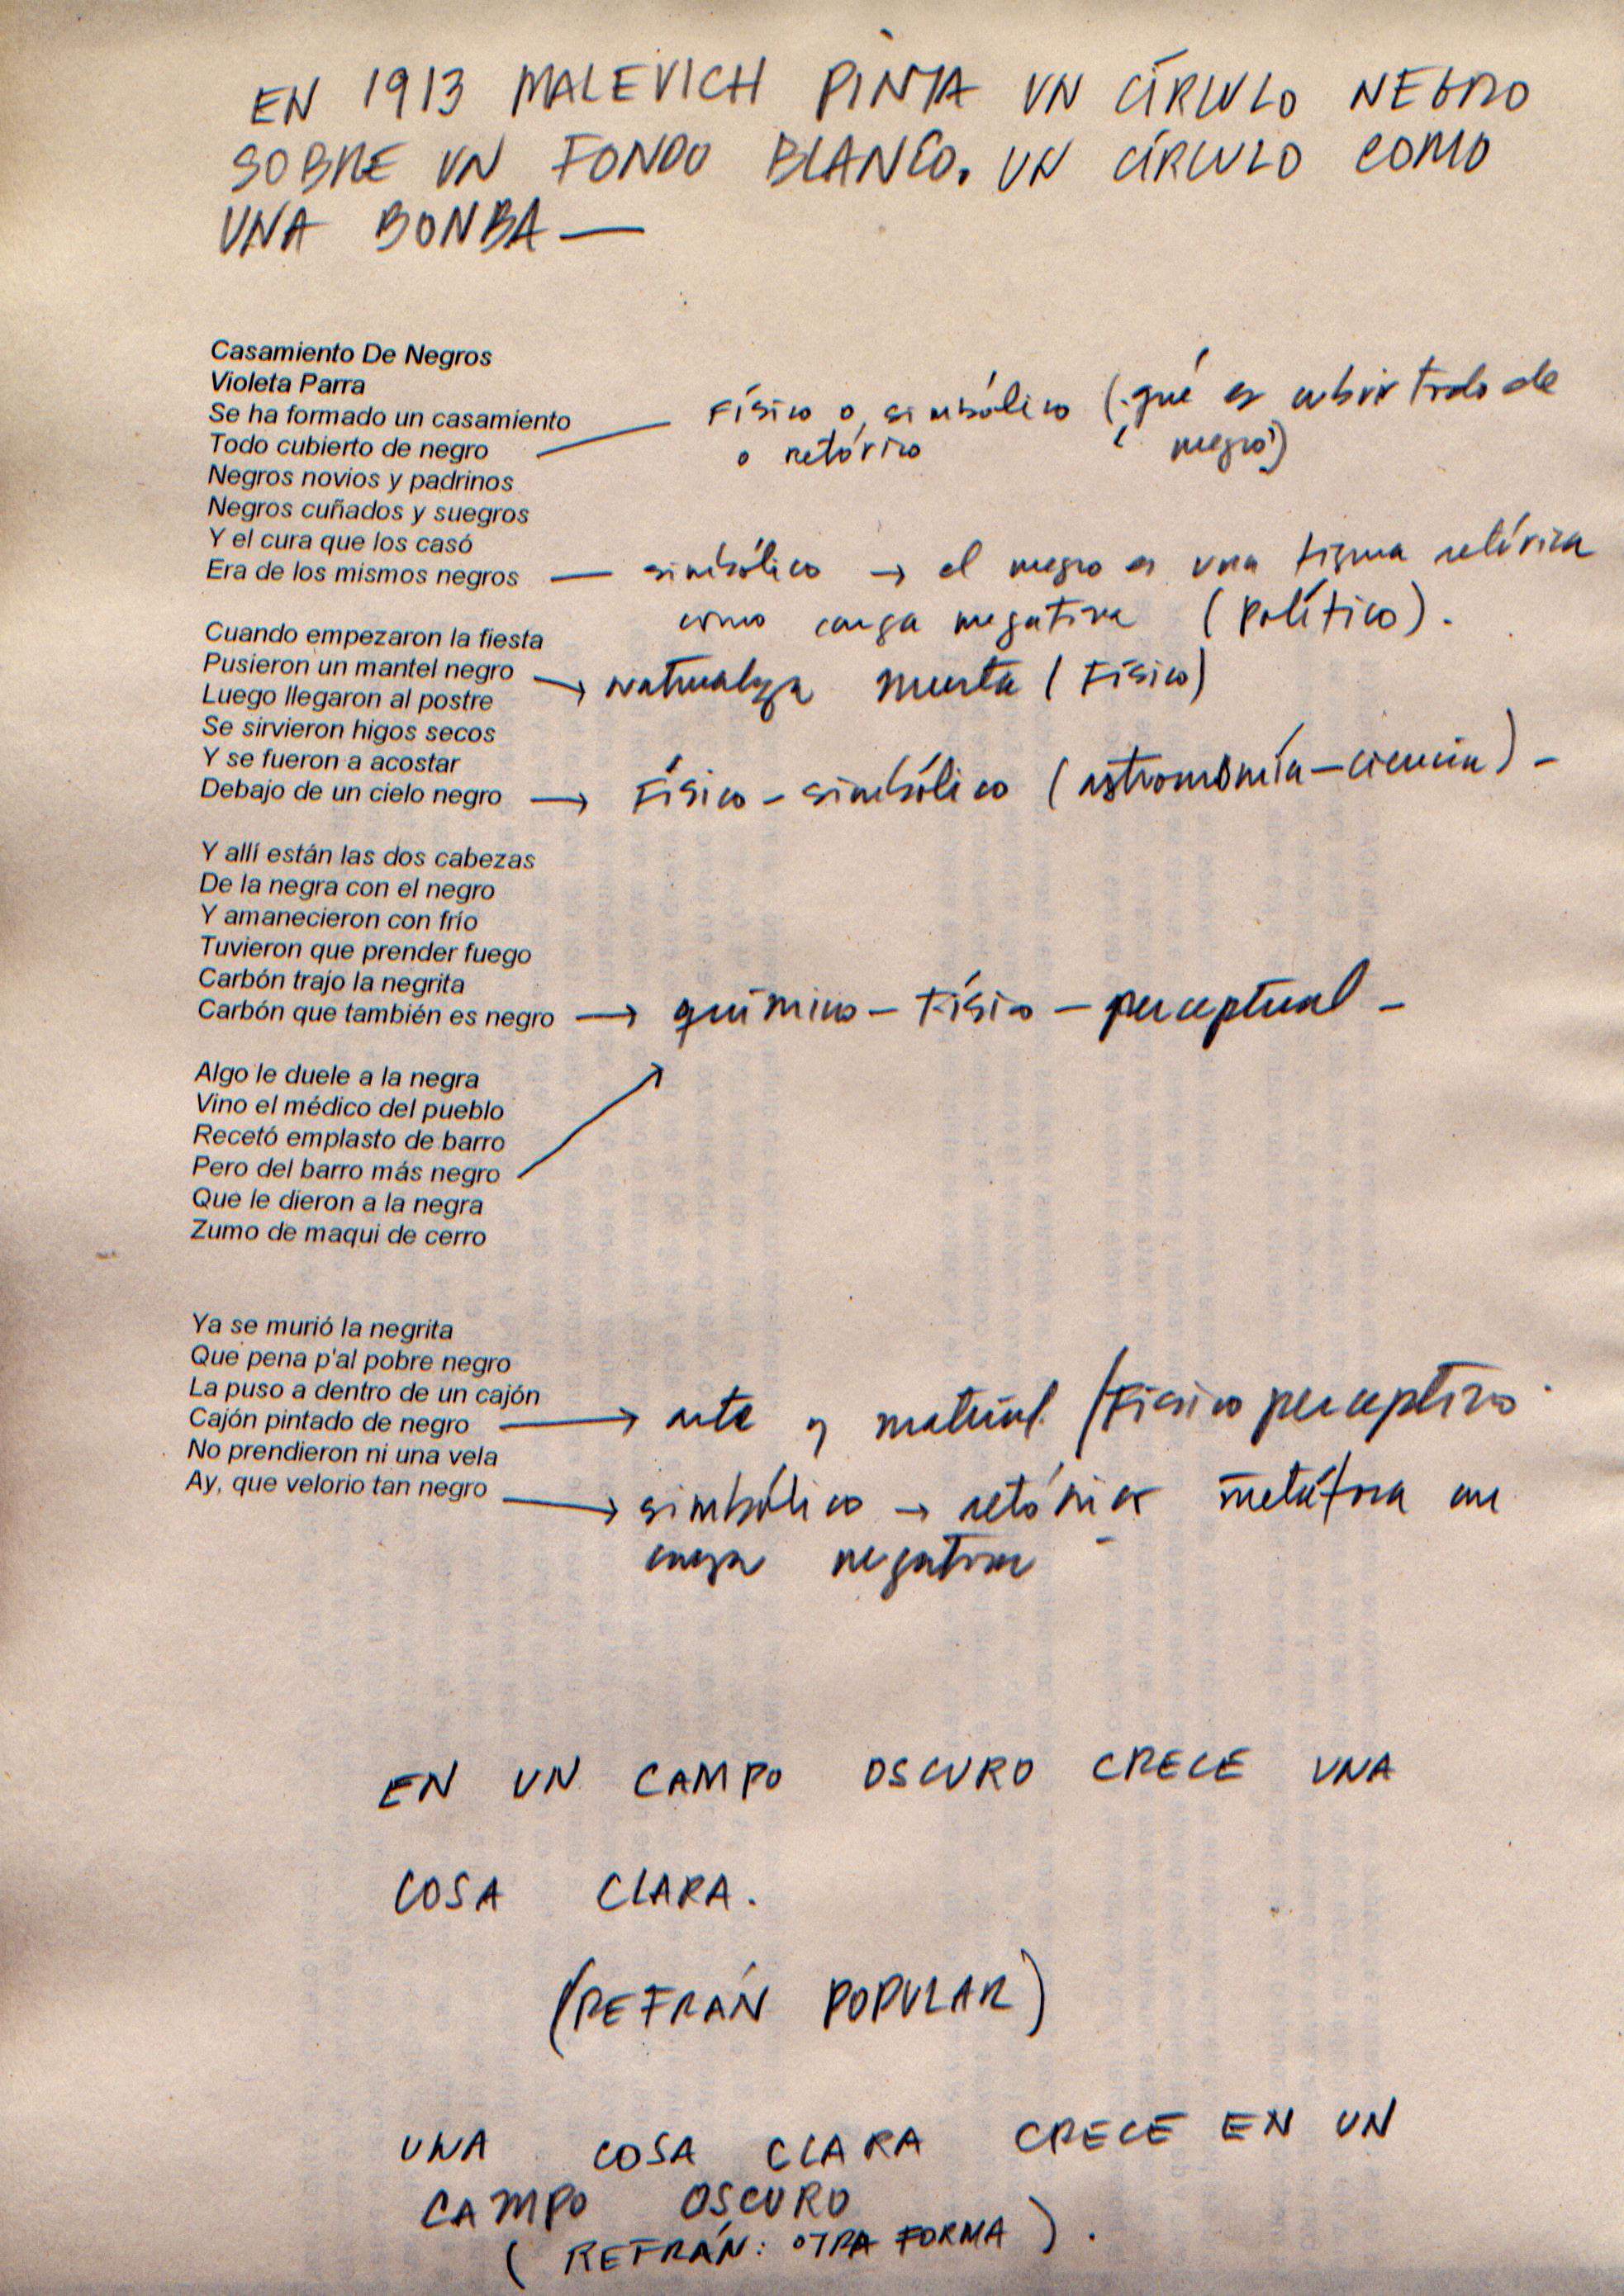 EN 1913 MALEVICH PINTA UN CÍRCULO NEGRO
SOBRE UN FONDO BLANCO. UN CÍRCULO COMO
UNA BONBA —
Casamiento De Negros
Violeta Parra
Se ha formado un casamiento
Todo cubierto de negro
Físico o simbólico (¿qué es cubrir todo de
o retórico negro?)
Negros novios y padrinos
Negros cuñados y suegros
Y el cura que los casó
Era de los mismos negros
simbólico → el negro es una figura retórica
como carga negativa (político).
Cuando empezaron la fiesta
Pusieron un mantel negro
→ naturaleza muerta (Físico)
Luego llegaron al postre
Se sirvieron higos secos
Y se fueron a acostar
Debajo de un cielo negro
→ Físico - simbólico (astronomía - ciencia) -
Y allí están las dos cabezas
De la negra con el negro
Y amanecieron con frío
Tuvieron que prender fuego
Carbón trajo la negrita
Carbón que también es negro
→ químico - Físico - perceptual -
Algo le duele a la negra
Vino el médico del pueblo
Recetó emplasto de barro
Pero del barro más negro
Que le dieron a la negra
Zumo de maqui de cerro
Ya se murió la negrita
Que pena p'al pobre negro
La puso a dentro de un cajón
Cajón pintado de negro
→ arte y material / Físico perceptivo
No prendieron ni una vela
Ay, que velorio tan negro
→ simbólico → retórica metáfora en
carga negativa
EN UN CAMPO OSCURO CRECE UNA
COSA CLARA.
(REFRÁN POPULAR)
UNA COSA CLARA CRECE EN UN
CAMPO OSCURO
(REFRÁN: OTRA FORMA).